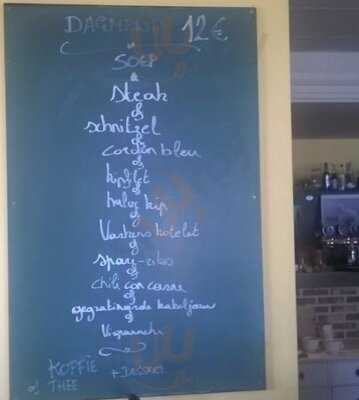 DAGMENU 12€
SOEP
&
Steak
of
schnitzel
of
Cordon bleu
of
kipfilet
of
halve kip
of
Varkens kotelet
of
spare-ribs
of
chili con carne
of
gegratineerde kabeljauw
of
KOFFIE
of THEE
+ Dessert